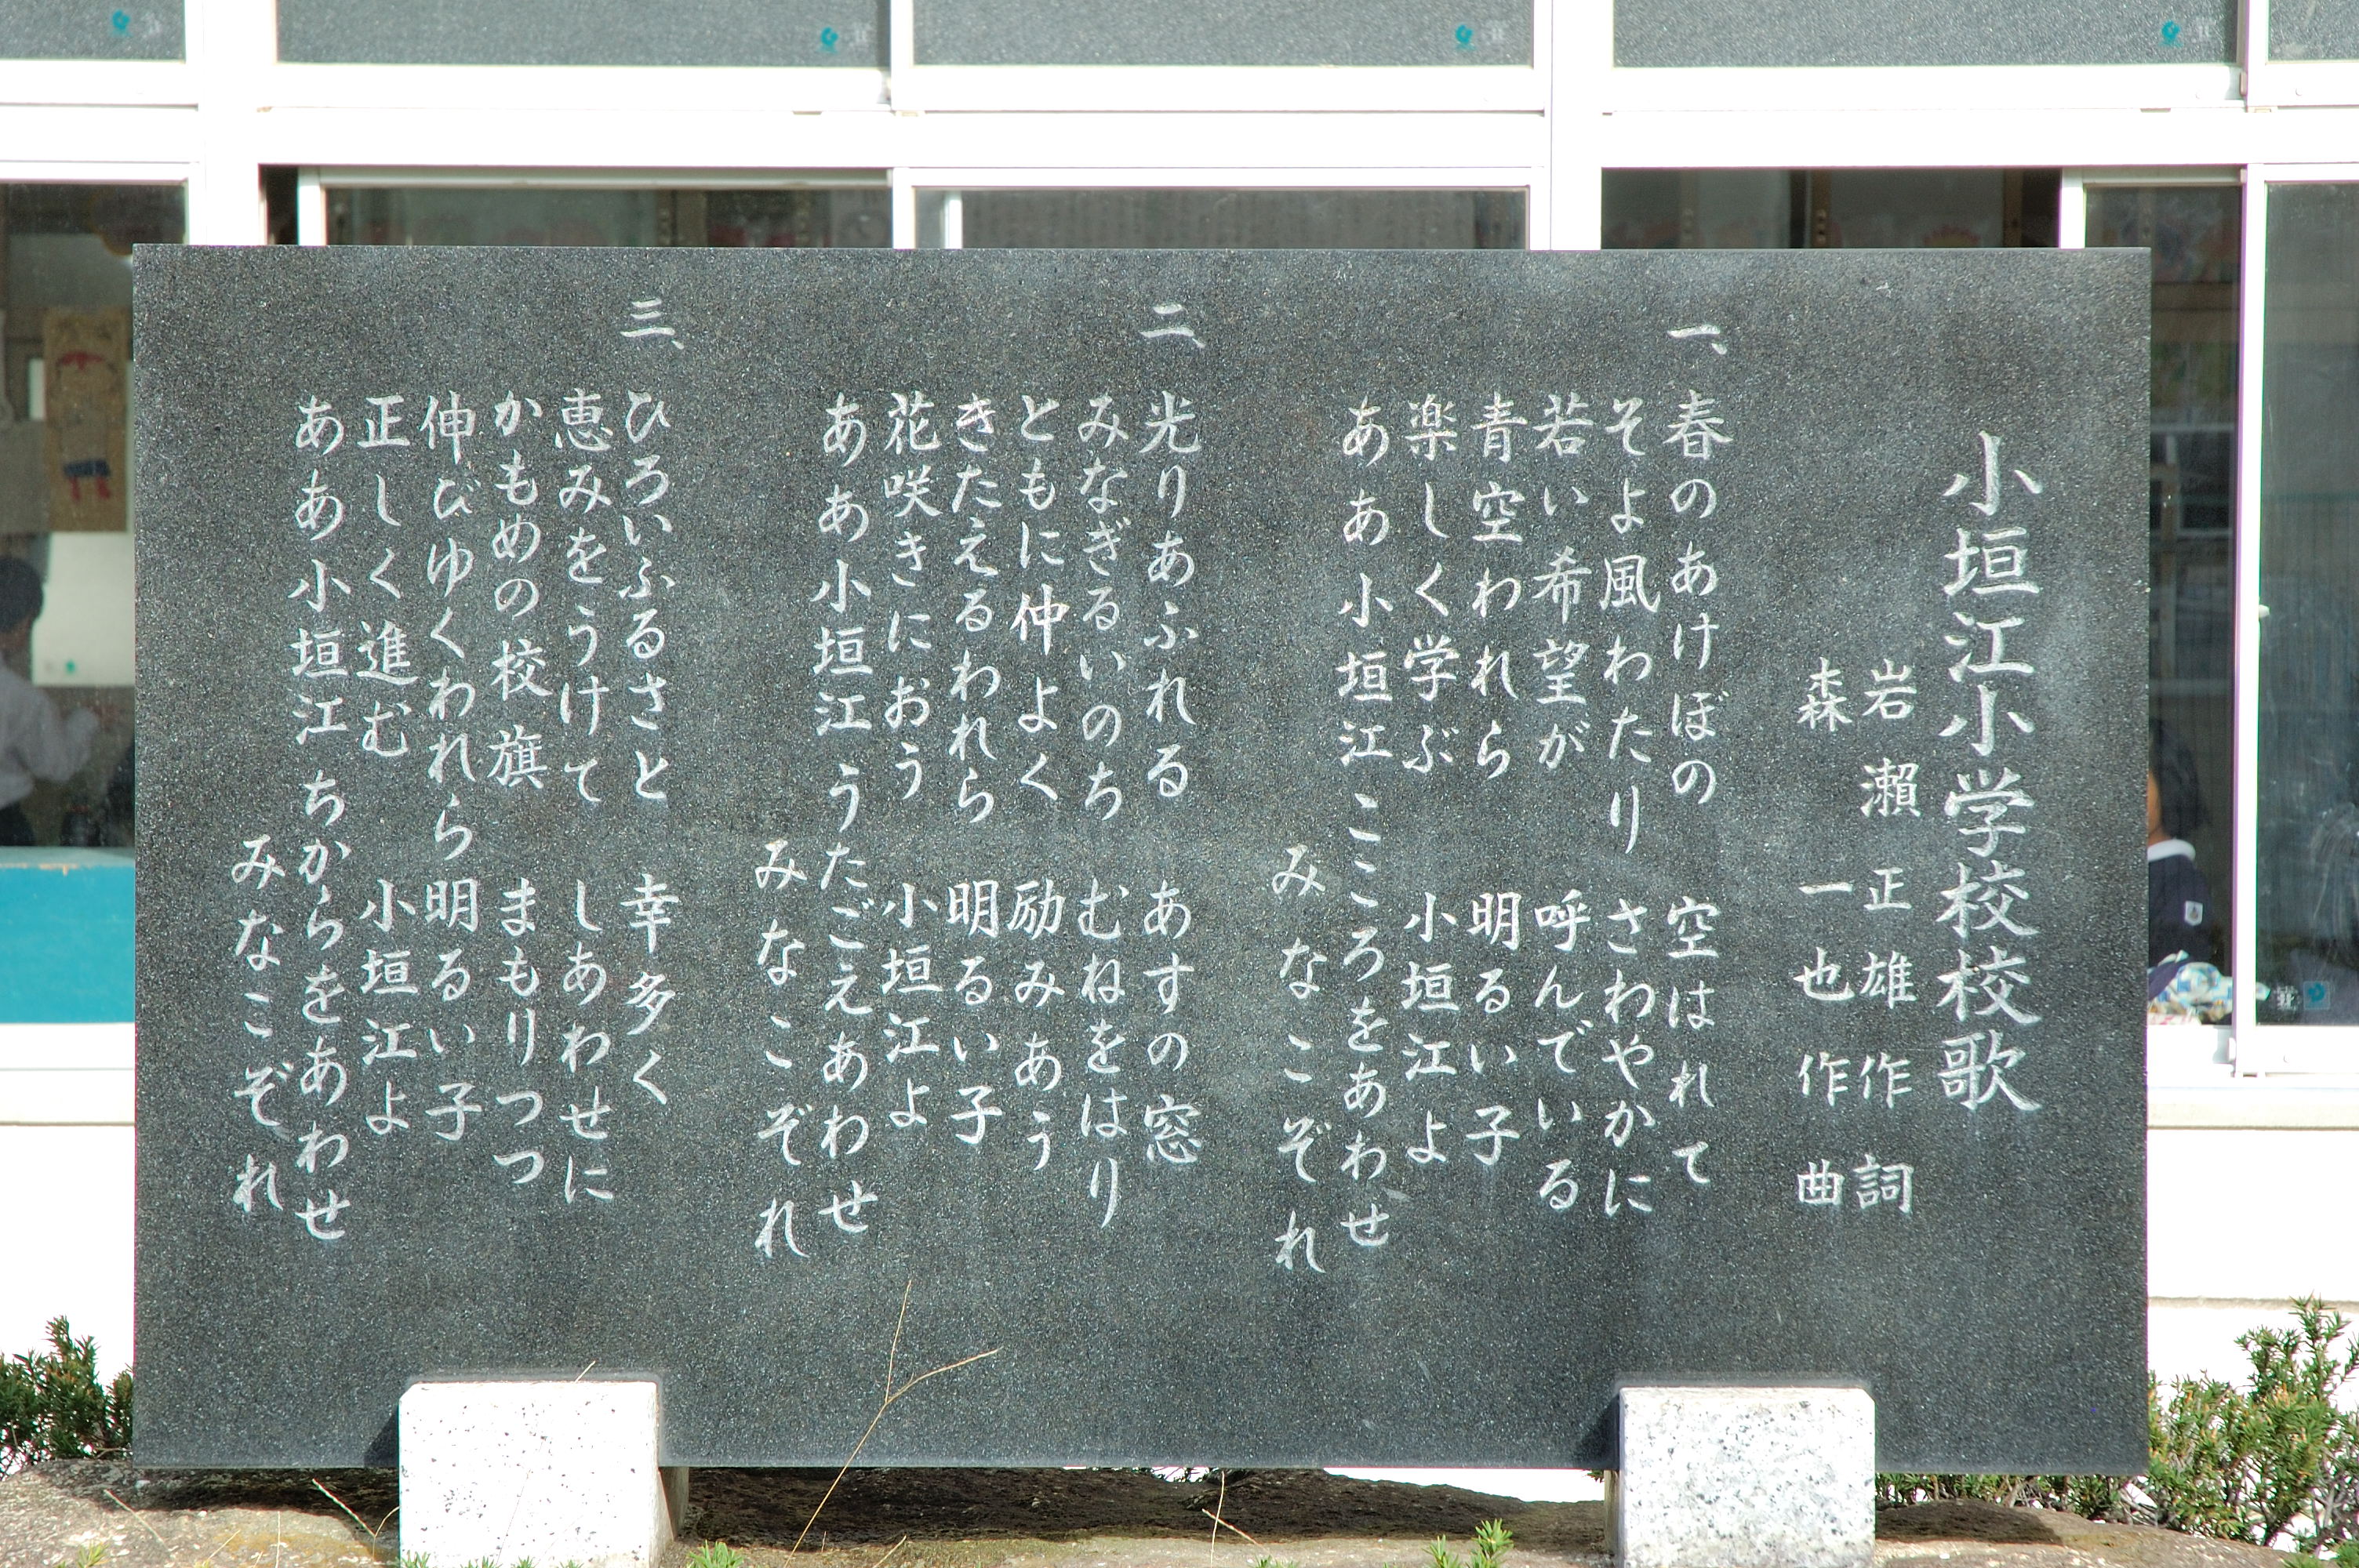 小垣江小学校校歌
岩瀬正雄作詞
森一也作曲
一、春のあけぼの 空はれて
そよ風わたり さわやかに
若い希望が 呼んでいる
青空われら 明るい子
楽しく学ぶ 小垣江よ
ああ小垣江 こころをあわせ
みなこぞれ
二、光りあふれる あすの窓
みなぎるいのち むねをはり
ともに仲よく 励みあう
きたえるわれら 明るい子
花咲きにおう 小垣江よ
ああ小垣江 うたごえあわせ
みなこぞれ
三、ひろいふるさと 幸多く
恵みをうけて しあわせに
かもめの校旗 まもりつつ
伸びゆくわれら 明るい子
正しく進む 小垣江よ
ああ小垣江 ちからをあわせ
みなこぞれ